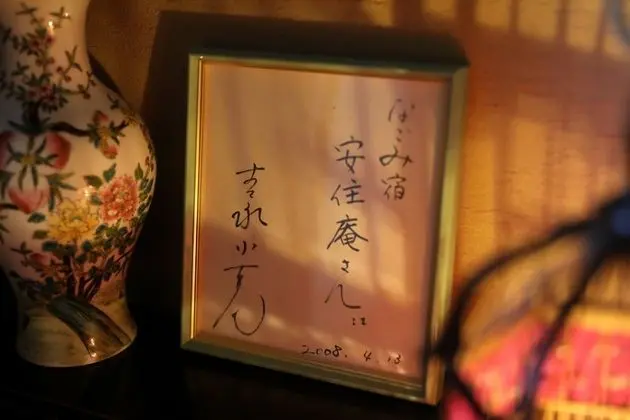 なごみ宿
安住庵さん江
吉永小百合
2008. 4. 13